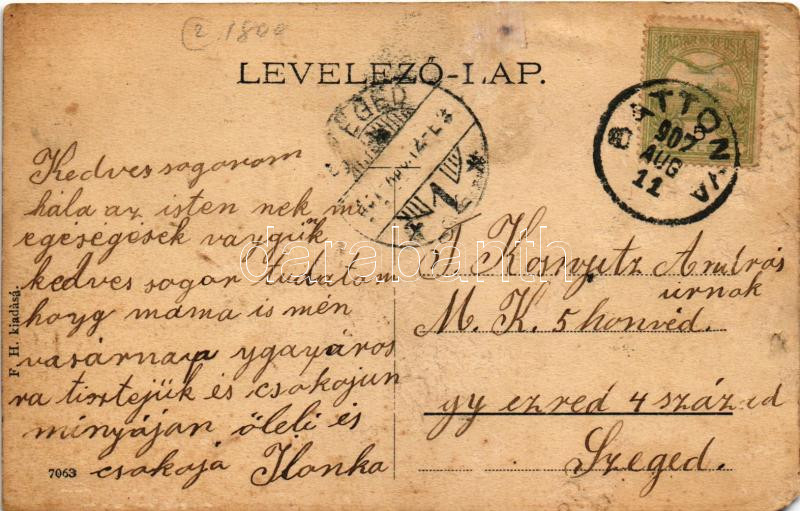 2 1800
LEVELEZŐ-LAP.
BATTONYA
907 AUG 11
SZEGED
1
Kedves sogorom
hála az isten nek mi
egéségések vagyük
kedves sogor tudatom
hogy mama is mén
vasárnap
ra tisztejük és csokojun
minyájan öleli és
csokoja Ilonka
T. Kosnyitz András
úrnak
M. K. 5 honvéd.
gy ezred 4 század
Szeged.
F. H. kiadása.
7063
darabanth